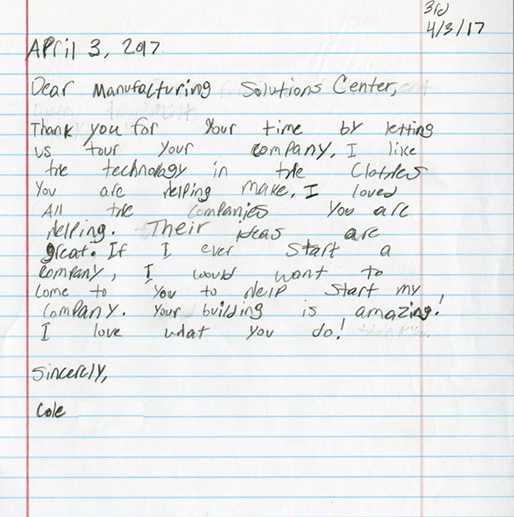 3rd
4/3/17
April 3, 2017
Dear Manufacturing Solutions Center,
Thank you for your time by letting
us tour your company. I like
the technology in the Clothes
You are helping make. I loved
All the companies you are
helping. Their ideas are
great. If I ever start a
company, I would want to
come to you to help start my
company. Your building is amazing!
I love what you do!
Sincerely,
Cole